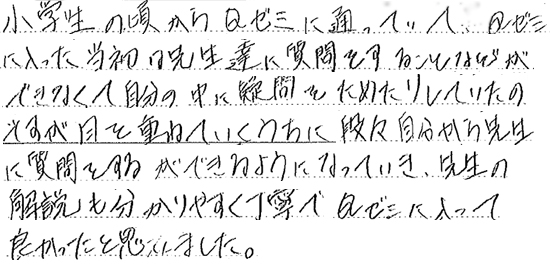 小学生の頃からQゼミに通っていて、Qゼミ
に入った当初は先生達に質問をすることなどが
できなくて自分の中に疑問をためたりしていたの
ですが日を重ねていくうちに段々自分から先生
に質問をするができるようになっていき、先生の
解説も分かりやすく丁寧でQゼミに入って
良かったと思えました。